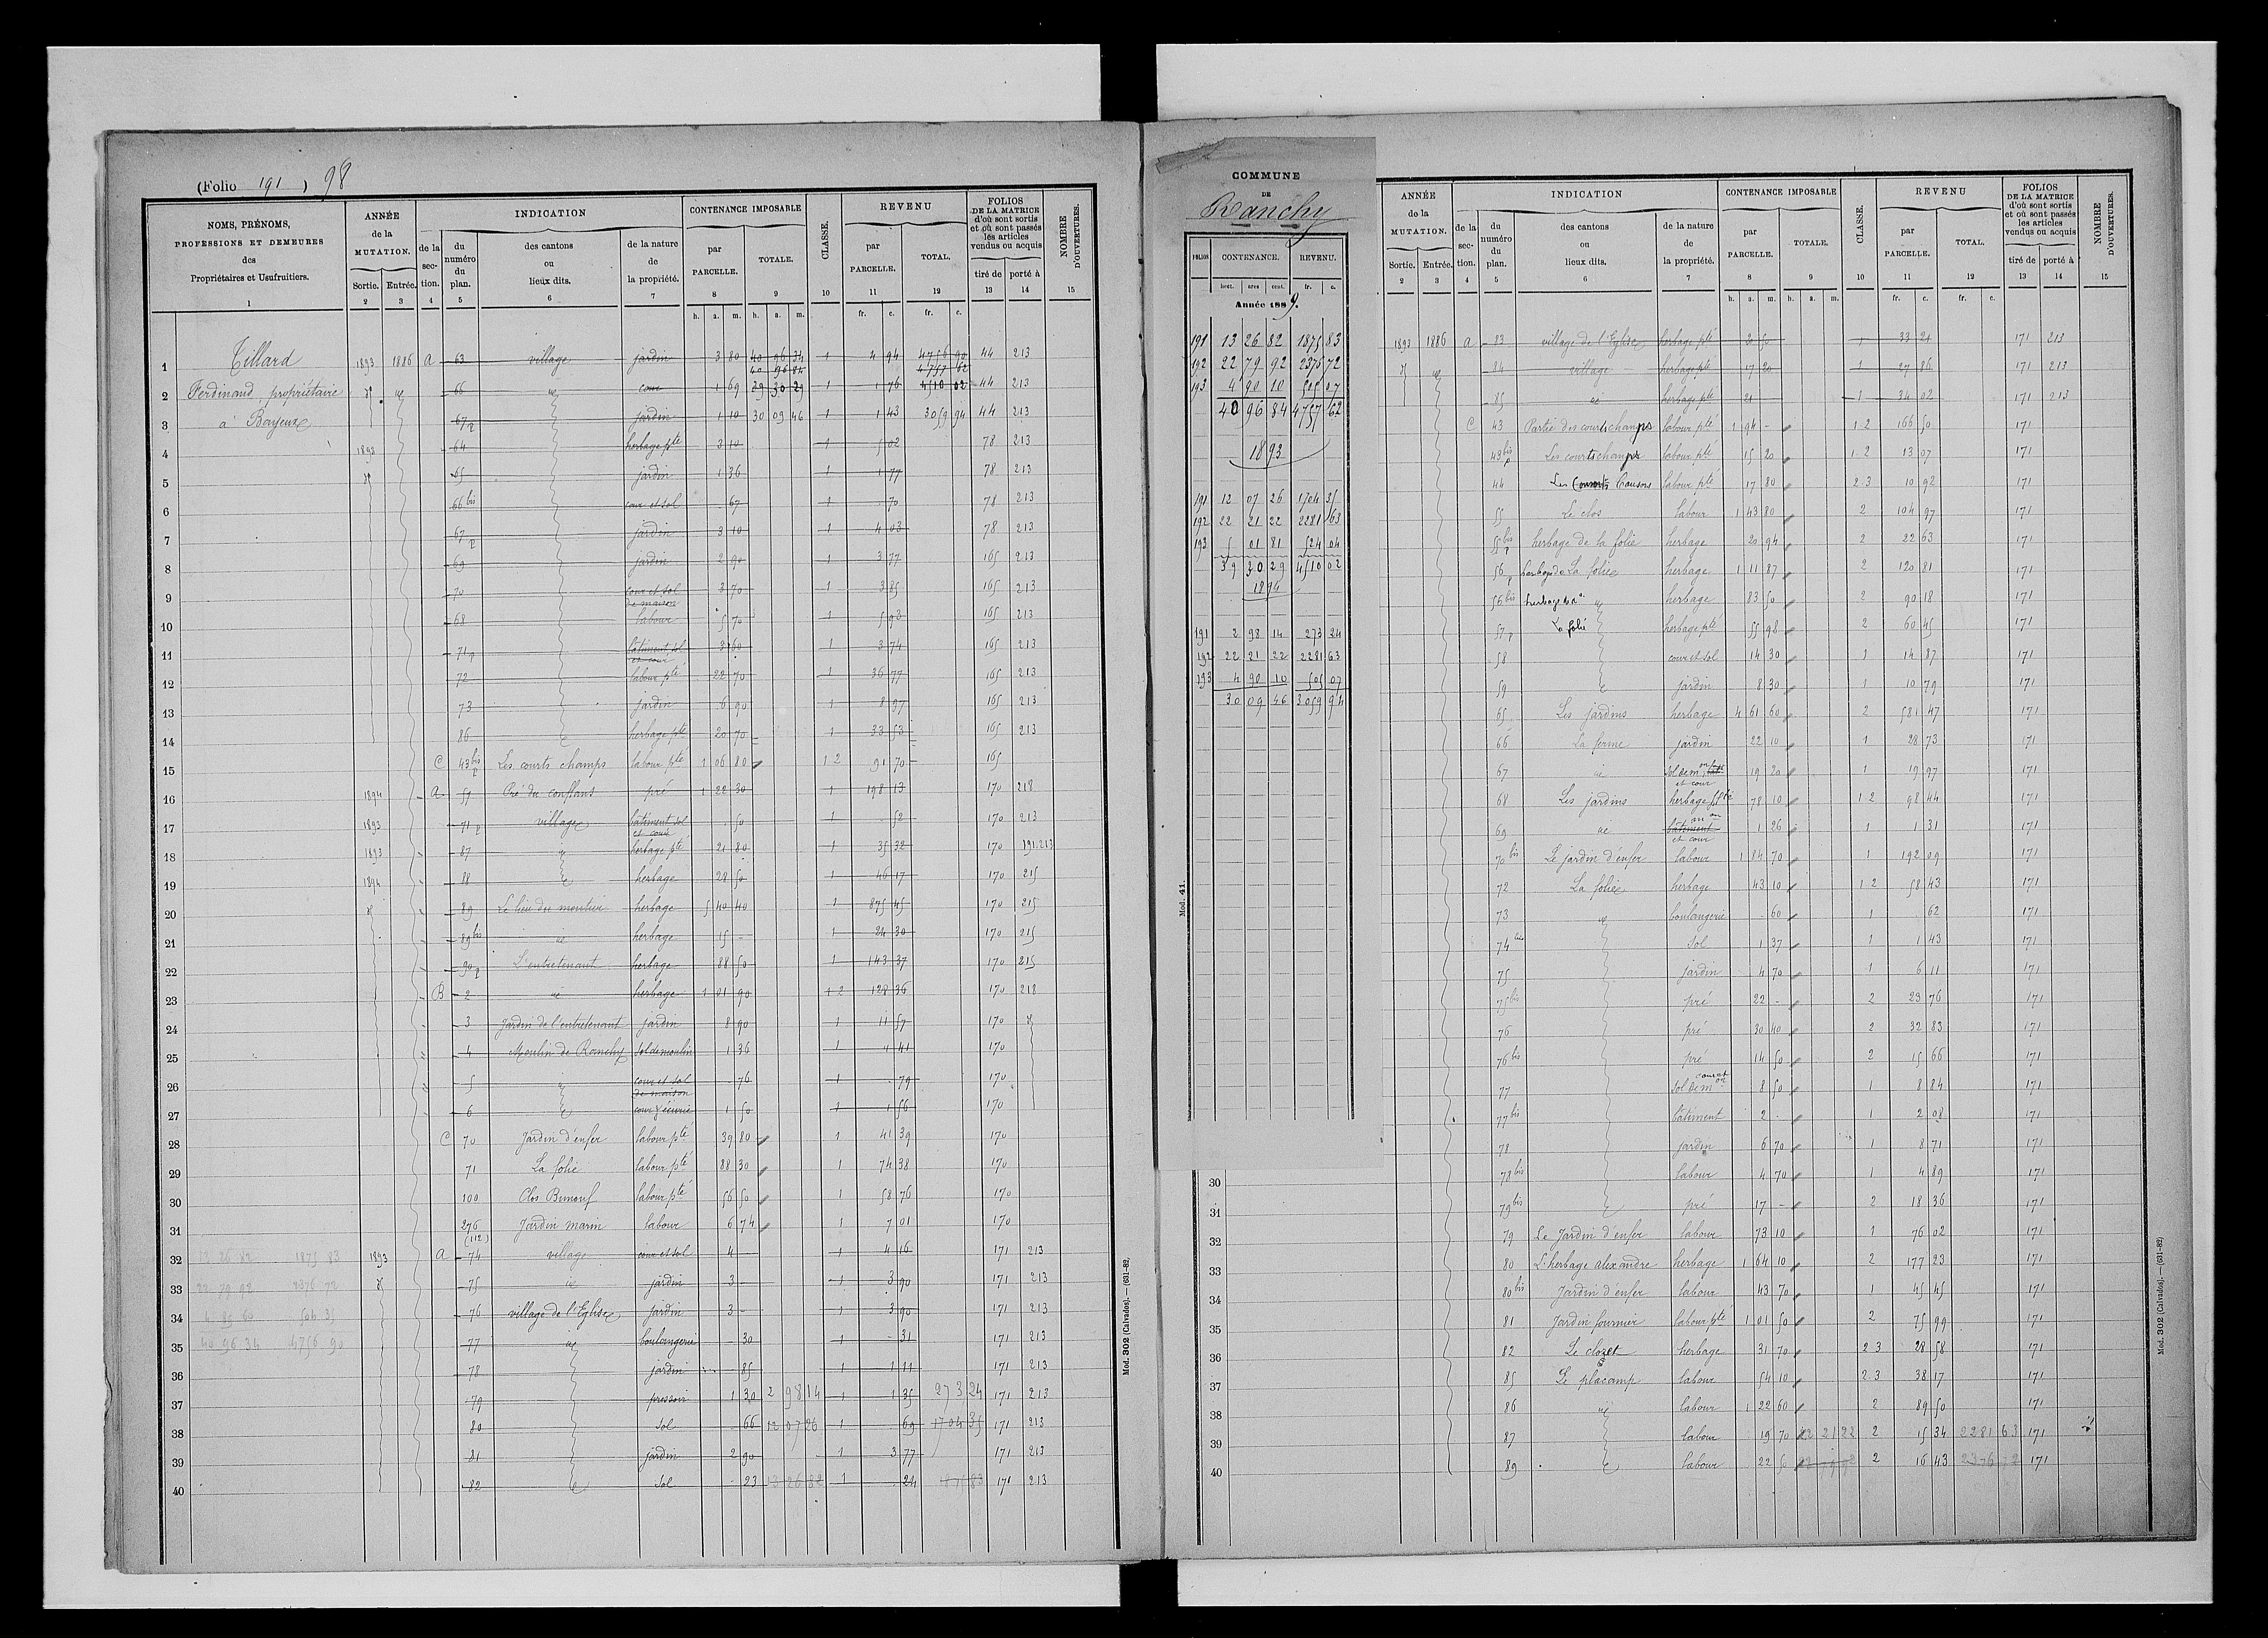 (Folio 191) 98
NOMS, PRÉNOMS, PROFESSIONS ET DEMEURES des Propriétaires et Usufruitiers.
ANNÉE de la MUTATION. Sortie. Entrée.
INDICATION de la section. du numéro du plan. des cantons ou lieux dits. de la nature de la propriété.
CONTENANCE IMPOSABLE par PARCELLE. TOTALE.
CLASSE.
REVENU par PARCELLE. TOTAL.
FOLIOS DE LA MATRICE d'où sont sortis et où sont passés les articles vendus ou acquis tiré de porté à
NOMBRE D'OUVERTURES.
1 2 3 4 5 6 7 8 9 10 11 12 13 14 15
h. a. m. h. a. m. fr. c. fr. c.
1 Tillard 1893 1886 A 63 village jardin 3 80 40 96 34 1 4 94 4756 90 44 213
40 96 84 4757 62
2 Ferdinand, propriétaire 66 cour 1 69 39 30 29 1 1 76 4510 02 44 213
3 à Bayeux 67p jardin 1 10 30 09 46 1 1 43 3059 94 44 213
4 1892 64 herbage pté 3 10 1 5 02 78 213
5 65 jardin 1 36 1 1 77 78 213
6 66 bis cour et sol 67 1 70 78 213
7 67p jardin 3 10 1 4 03 78 213
8 69 jardin 2 90 1 3 77 165 213
9 70 cour et sol de maison 3 70 1 3 85 165 213
10 68 labour 5 70 1 5 93 165 213
11 71p bâtiment, sol et cour 3 60 1 3 74 165 213
12 72 labour pté 22 70 1 36 77 165 213
13 73 jardin 6 90 1 8 97 165 213
14 86 herbage pté 20 70 1 33 53 165 213
15 C 43 bis p Les courts champs labour pté 1 06 80 1 2 91 70 165
16 1894 A 57 Pré du conflans pré 1 22 30 1 198 13 170 218
17 1893 71p village bâtiment sol et cour 50 1 52 170 213
18 1893 87 herbage pté 21 80 1 35 32 170 191.213
19 1894 88 herbage 28 50 1 46 17 170 215
20 89 herbage 5 40 40 1 875 45 170 215
21 89 bis herbage 15 - 1 24 30 170 215
22 90p L'entretenant herbage 88 50 1 143 37 170 215
23 B 2 herbage 1 01 90 1 2 128 36 170 218
24 3 Jardin de l'entretenant jardin 8 90 1 11 57 170
25 4 Moulin de Ranchy sol de moulin 1 36 1 1 41 170
26 5 cour et sol de maison 76 1 79 170
27 6 cour & écurie 1 50 1 1 56 170
28 C 70 Jardin d'enfer labour pté 39 80 1 41 39 170
29 71 La folie labour pté 88 30 1 74 38 170
30 100 labour pté 56 50 1 58 76 170
31 276 (112) Jardin marin labour 6 74 1 7 01 170
32 13 26 82 1875 83 1893 A 74 village cour et sol 4 1 4 16 171 213
33 22 79 92 2376 72 75 jardin 3 - 1 3 90 171 213
34 76 village de l'Eglise jardin 3 - 1 3 90 171 213
35 40 96 34 4756 90 77 boulangerie 30 1 31 171 213
36 78 jardin 85 1 1 11 171 213
37 79 pressoir 1 30 2 98 14 1 1 35 273 24 171 213
38 80 sol 66 12 07 26 1 69 1704 35 171 213
39 81 jardin 2 90 1 3 77 171 213
40 82 sol 23 13 26 82 1 24 1875 83 171 213
Mod. 302 (Calvados). — (631-82)
COMMUNE
DE
Ranchy
FOLIOS CONTENANCE. REVENU.
hect. ares cent. fr. c.
Année 1889.
191 13 26 82 1875 83
192 22 79 92 2376 72
193 4 90 10 505 07
40 96 84 4757 62
1893
191 12 07 26 1704 35
192 22 21 22 2281 63
193 5 01 81 524 04
39 30 29 4510 02
1894
191 2 98 14 273 24
192 22 21 22 2281 63
193 4 90 10 505 07
30 09 46 3059 94
Mod. 41.
ANNÉE de la MUTATION. Sortie. Entrée.
INDICATION de la section. du numéro du plan. des cantons ou lieux dits. de la nature de la propriété.
CONTENANCE IMPOSABLE par PARCELLE. TOTALE.
CLASSE.
REVENU par PARCELLE. TOTAL.
FOLIOS DE LA MATRICE d'où sont sortis et où sont passés les articles vendus ou acquis tiré de porté à
NOMBRE D'OUVERTURES.
2 3 4 5 6 7 8 9 10 11 12 13 14 15
h. a. m. h. a. m. fr. c. fr. c.
1893 1886 A 83 village de l'Eglise herbage pté 20 50 1 33 21 171 213
84 village herbage pté 17 20 1 27 86 171 213
85 herbage pté 21 1 34 02 171 213
C 43 Partie des courts champs labour pté 1 94 - 1 2 166 50 171
43 bis p Les courts champs labour pté 15 20 1 2 13 07 171
44 Les labour pté 17 80 2 3 10 92 171
55 Le clos labour 1 43 80 2 104 97 171
55 bis p herbage de la folie herbage 20 94 2 22 63 171
56p herbage de La folie herbage 1 11 87 2 120 81 171
56 bis herbage 83 50 2 90 18 171
57p La folie herbage pté 55 98 2 60 45 171
58 cour et sol 14 30 1 14 87 171
59 jardin 8 30 1 10 79 171
65 Les jardins herbage 4 61 60 2 581 47 171
66 La ferme jardin 22 10 1 28 73 171
67 sol de mon et cour 19 20 1 19 97 171
68 Les jardins herbage pté 78 10 1 2 98 44 171
69 bâtiment et cour 1 26 1 1 31 171
70 bis Le jardin d'enfer labour 1 84 70 1 192 09 171
72 La folie herbage 43 10 1 2 58 43 171
73 boulangerie 60 1 62 171
74 bis sol 1 37 1 1 43 171
75 jardin 4 70 1 6 11 171
75 bis pré 22 - 2 23 76 171
76 pré 30 40 2 32 83 171
76 bis pré 14 50 2 15 66 171
77 cour et sol de mon 8 50 1 8 84 171
77 bis bâtiment 2 - 1 2 08 171
78 jardin 6 70 1 8 71 171
30 78 bis labour 4 70 1 4 89 171
31 79 bis pré 17 - 2 18 36 171
32 79 Le Jardin d'enfer labour 73 10 1 76 02 171
33 80 L'herbage alexandre herbage 1 64 10 2 177 23 171
34 80 bis Jardin d'enfer labour 43 70 1 45 45 171
35 81 Jardin fournier labour pté 1 01 50 2 75 99 171
36 82 Le closet herbage 31 70 2 3 28 58 171
37 85 Le placamp labour 54 10 2 3 38 17 171
38 86 labour 1 22 60 2 89 50 171
39 87 labour 19 70 22 21 22 2 15 34 2281 63 171
40 89 labour 22 5 22 79 92 2 16 43 2376 72 171
Mod. 302 (Calvados). — (631-82)